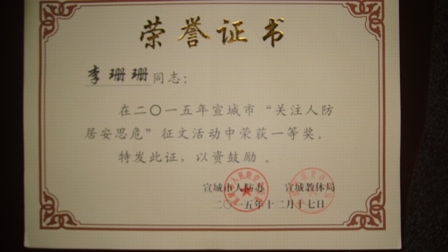 荣誉证书
李珊珊同志：
在二〇一五年宣城市“关注人防
居安思危”征文活动中荣获一等奖。
特发此证，以资鼓励。
宣城市人防办 宣城教体局
二〇一五年十二月十七日